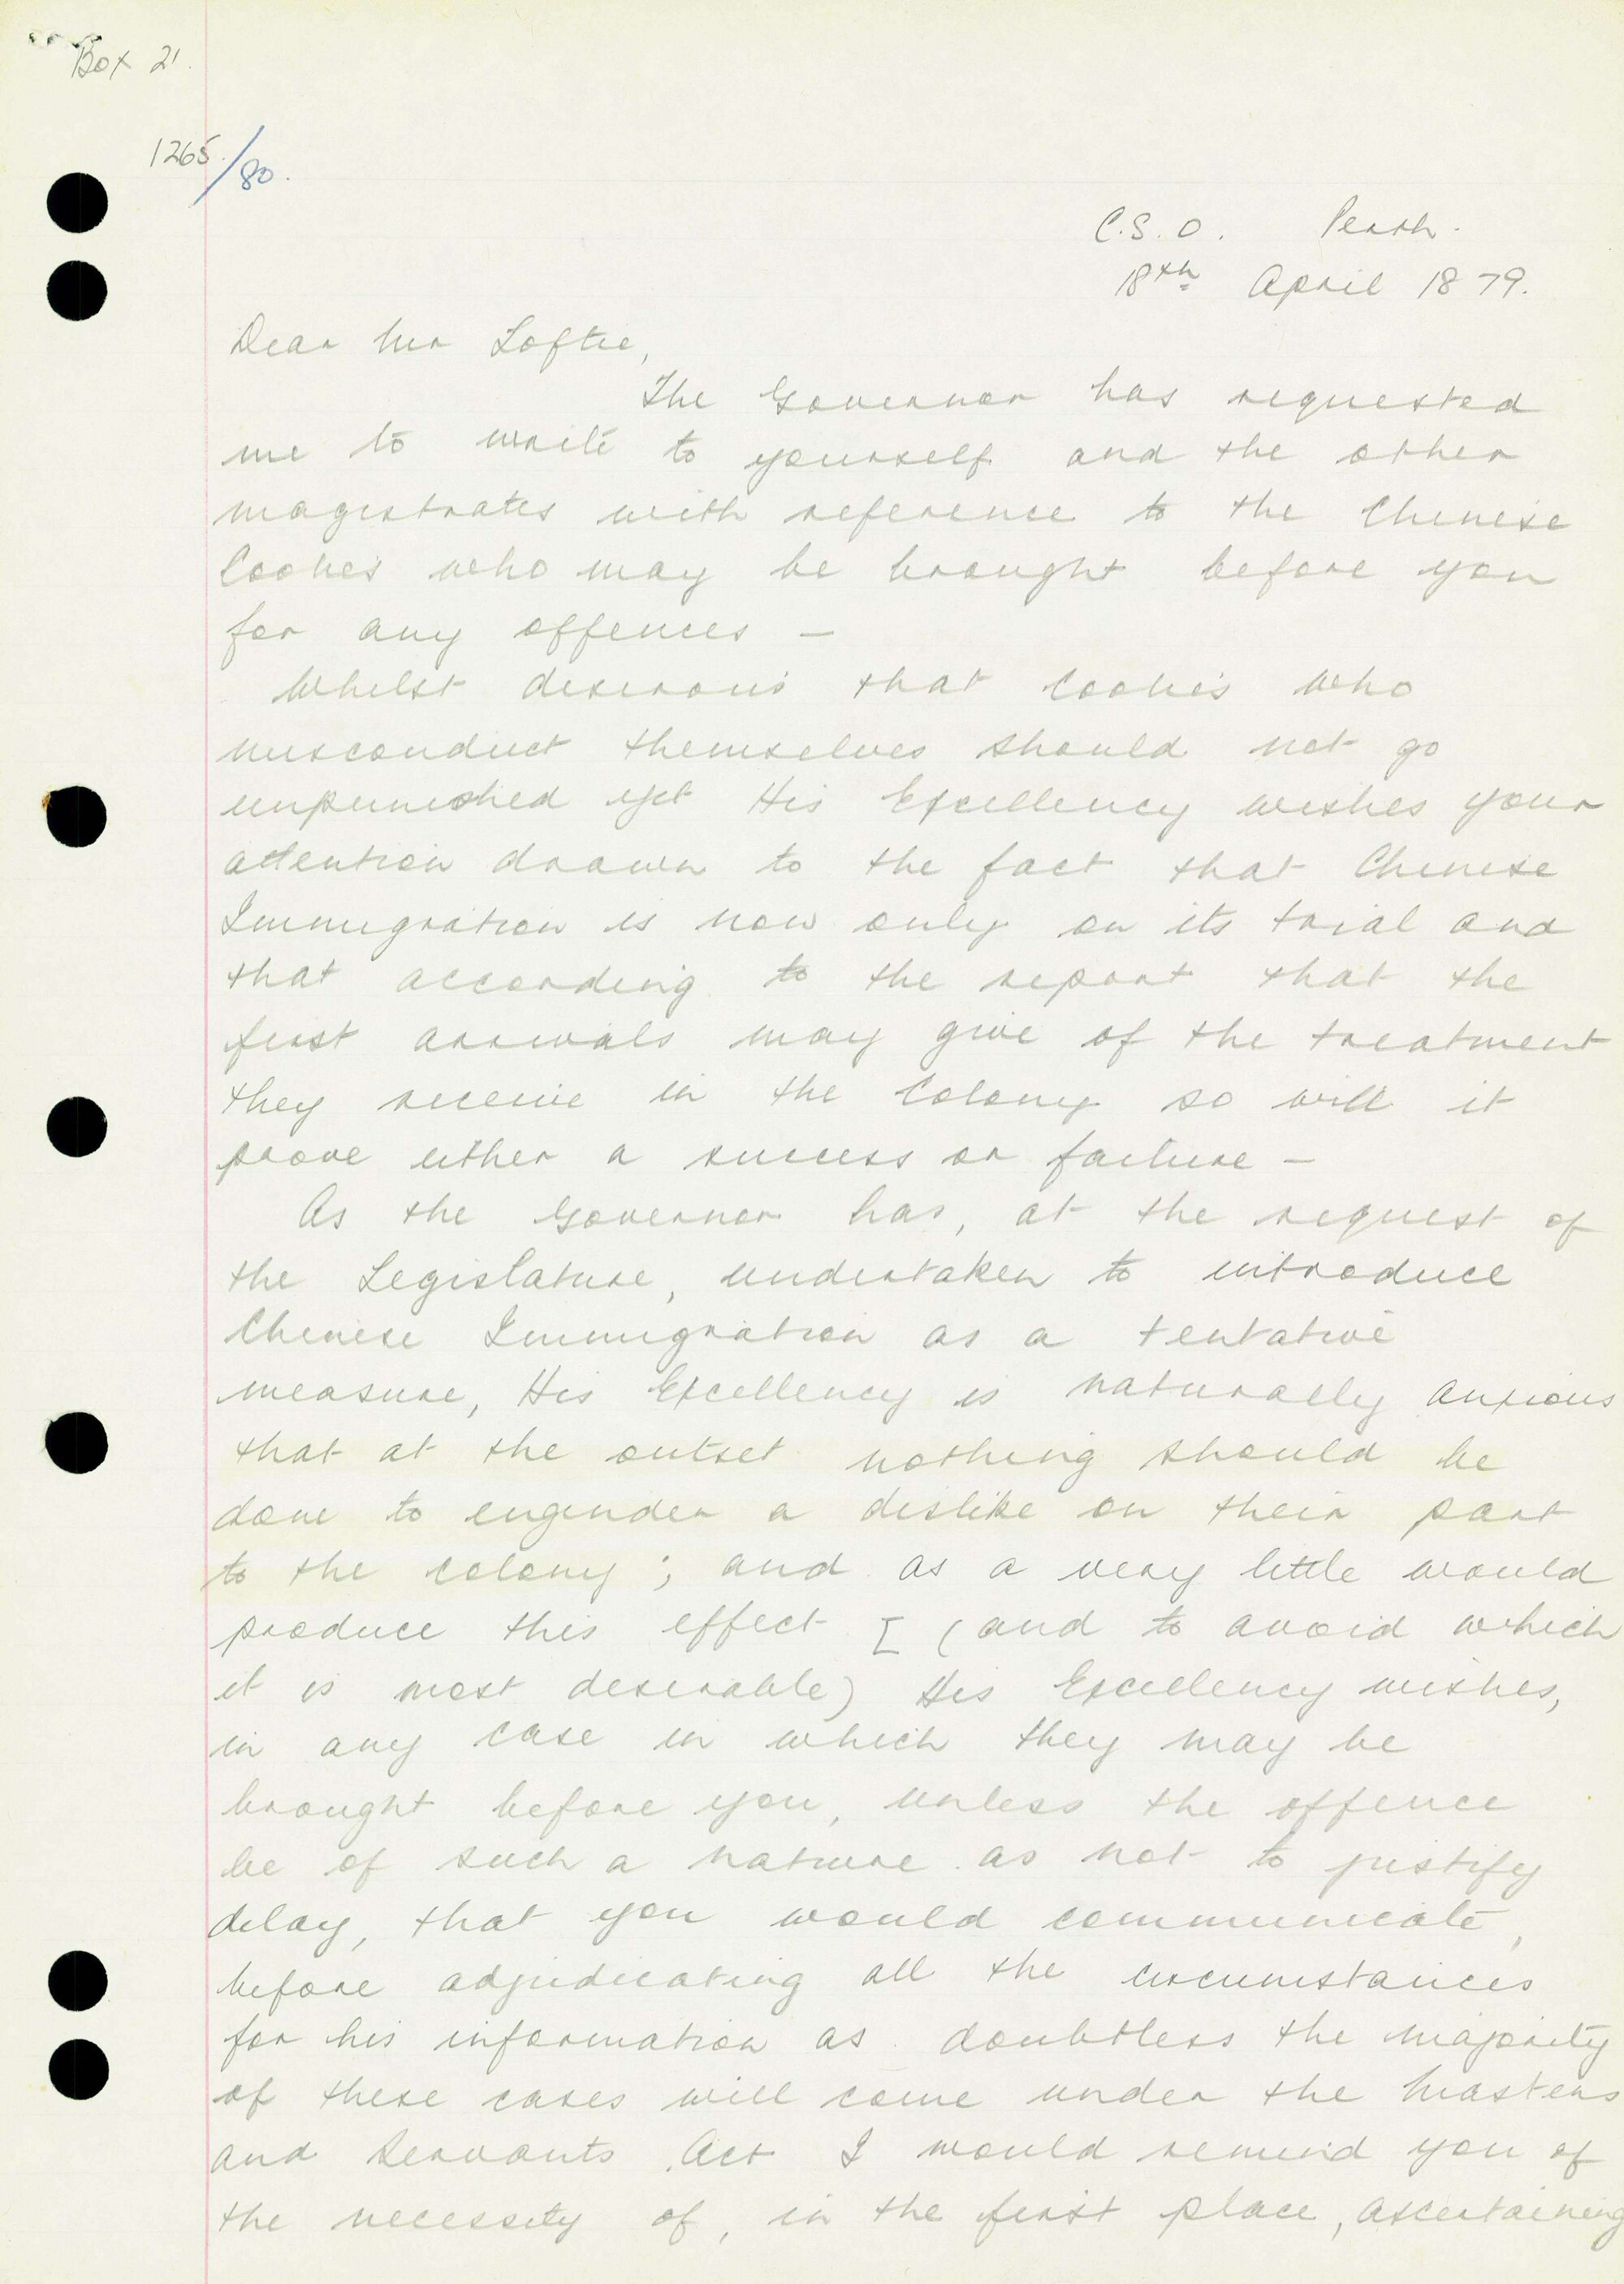 Box 21.
1265./80.
C.S.O. Perth.
18th April 1879.
Dear Mr Loftie,
The Governor has requested
me to write to yourself and the other
magistrates with reference to the Chinese
Coolies who may be brought before you
for any offences –
Whilst desirous that Coolies who
misconduct themselves should not go
unpunished yet His Excellency wishes your
attention drawn to the fact that Chinese
Immigration is now only on its trial and
that according to the report that the
first arrivals may give of the treatment
they receive in the Colony so will it
prove either a success or failure –
As the Governor has, at the request of
the Legislature, undertaken to introduce
Chinese Immigration as a tentative
measure, His Excellency is naturally anxious
that at the outset nothing should be
done to engender a dislike on their part
to the colony; and as a very little would
produce this effect [ (and to avoid which
it is most desirable) His Excellency wishes,
in any case in which they may be
brought before you, unless the offence
be of such a nature as not to justify
delay, that you would communicate,
before adjudicating all the circumstances
for his information as doubtless the majority
of these cases will come under the Masters
and Servants Act I would remind you of
the necessity of, in the first place, ascertaining